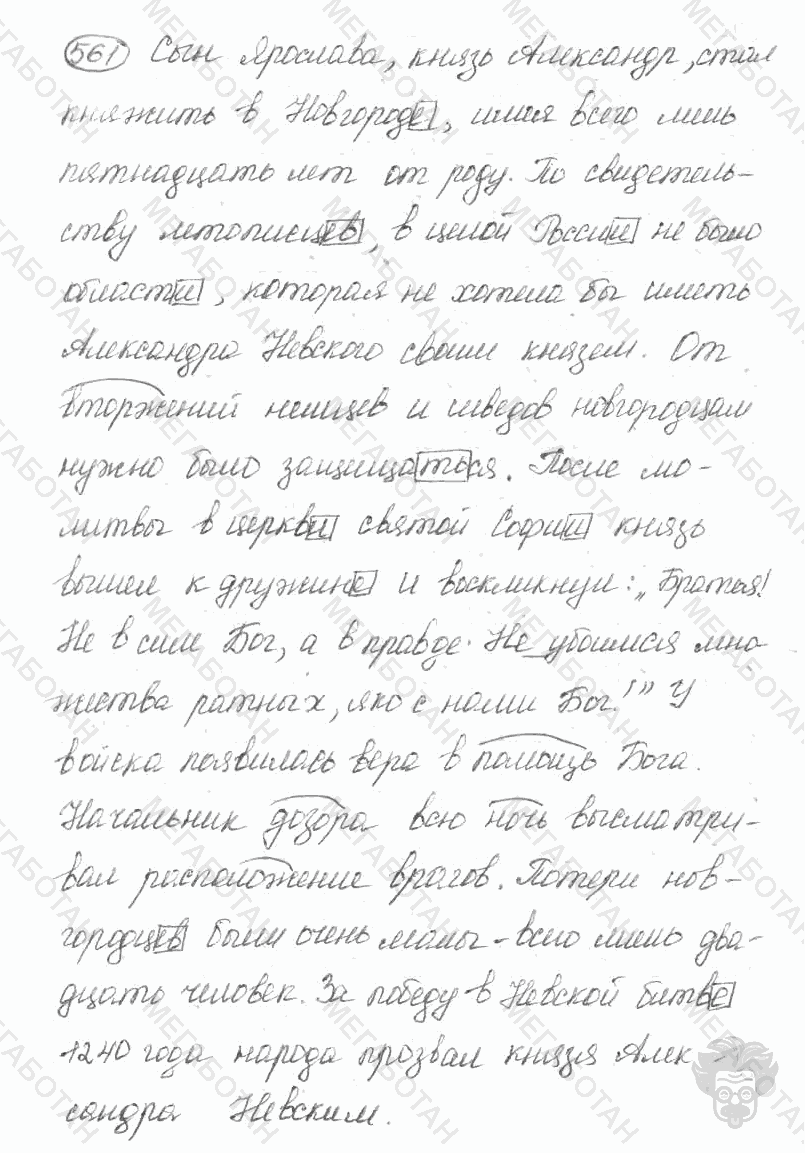 561 Сын Ярослава, князь Александр, стал
княжить в Новгороде, имея всего лишь
пятнадцать лет от роду. По свидетель-
ству летописцев, в целой России не было
области, которая не хотела бы иметь
Александра Невского своим князем. От
вторжений немцев и шведов новгородцам
нужно было защищаться. После мо-
литвы в церкви святой Софии князь
вышел к дружине и воскликнул: „Братья!
Не в силе Бог, а в правде. Не убоимся мно-
жества ратных, яко с нами Бог!" У
войска появилась вера в помощь Бога.
Начальник дозора всю ночь высматри-
вал расположение врагов. Потери нов-
городцев были очень малы - всего лишь два-
дцать человек. За победу в Невской битве
1240 года народа прозвал князя Алек-
сандра Невским.
МЕГАБОТАН